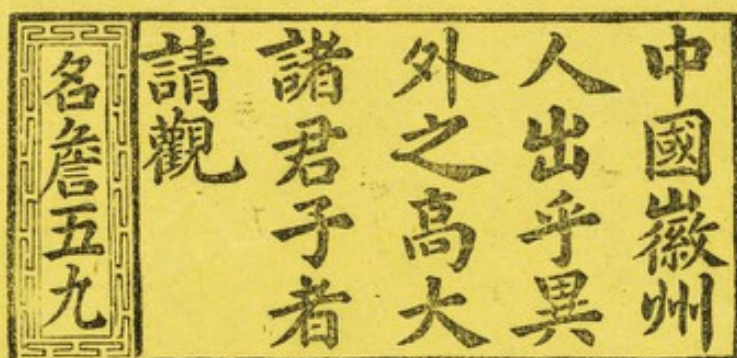 中國徽州
人出乎異
外之高大
諸君子者
請觀
名詹五九